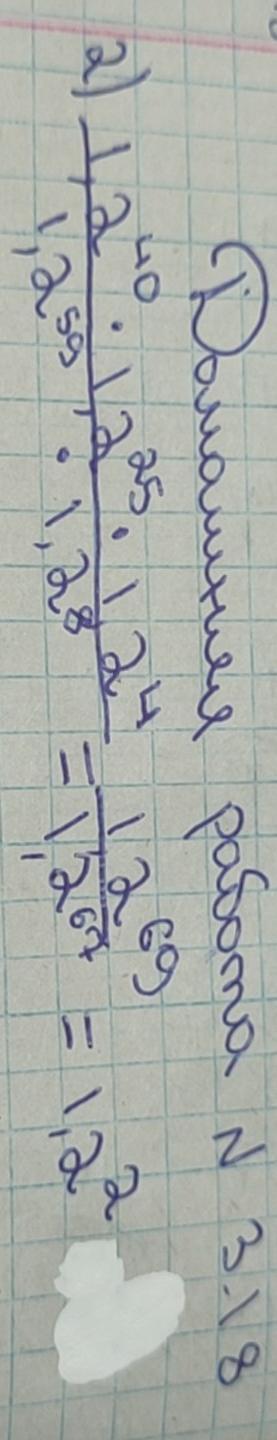 Домашняя работа N 3.18
2) \frac{1,2^{40} · 1,2^{25} · 1,2^{4}}{1,2^{59} · 1,2^{8}} = \frac{1,2^{69}}{1,2^{67}} = 1,2^{2}